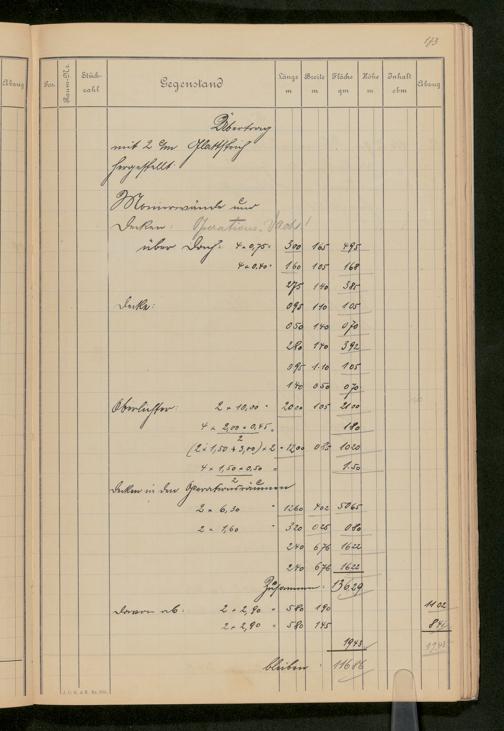 173
Abzug Pos. Raum-Nr. Stückzahl Gegenstand Länge m Breite m Fläche qm Höhe m Inhalt cbm Abzug
Übertrag
mit 2 cm Glattstrich
hergestellt
Monierwände und
Decken: Operations-
über Dach: 4 × 0,75 = 300 165 495
4 × 0,40 = 160 105 168
275 140 385
Decke: 095 110 105
050 140 070
280 140 392
095 1·10 105
140 050 070
Oberlichter: 2 × 10,00 = 2000 105 2100
4 × 2,00 × 0,45 = 180
2
(2 × 1,50 + 3,00) × 2 = 1200 085 1020
4 × 1,50 × 0,50 = 1.50
2
Decken in den Operationsräumen
2 × 6,30 = 1260 402 5065
2 × 1,60 = 320 025 080
240 676 1622
240 676 1622
Zusammen: 13629
davon ab: 2 × 2,90 = 580 190 1102
2 × 2,90 = 580 145 841
1943 1943
bleiben: 11686